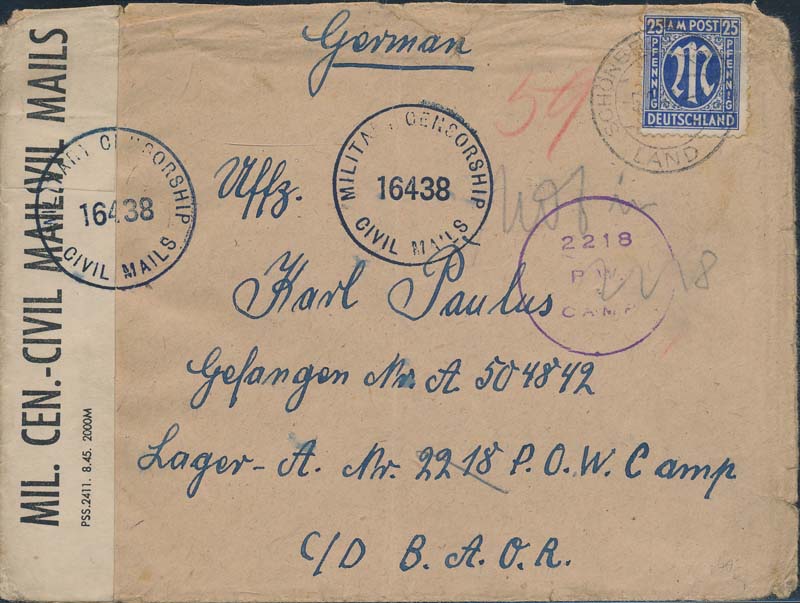 German
25 AM POST 25
PFENNIG PFENNIG
M
DEUTSCHLAND
LAND
59
MIL. CEN.-CIVIL MAIL
CIVIL MAILS
PSS.2411. 8.45. 2000M
MILITARY CENSORSHIP
16438
CIVIL MAILS
MILITARY CENSORSHIP
16438
CIVIL MAILS
not in
2218
2218
P.W.
CAMP
Uffz.
Karl Paulus
Gefangen Nr. A 504842
Lager-A. Nr. 2218 P.O.W. Camp
C/D B.A.O.R.